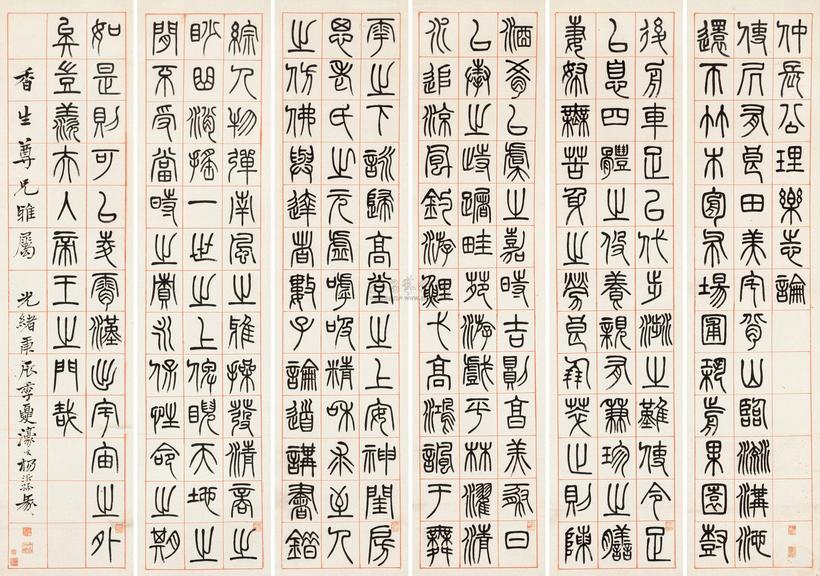 仲長公理樂志論
使凥有良田美宅背山臨流溝池
還帀竹木周布場圃築前果園樹
後舟車足以代步涉之難使令足
以息四體之役養親有兼珍之膳
妻孥無苦身之勞良朋萃止則陳
酒肴以虞之嘉時吉則亯羔豚日
以奉之歭躇畦苑游戲平林濯清
水追涼風釣游鯉弋高鴻諷于舞
雩之下詠歸高堂之上安神閨房
思老氏之玄虛呼吸精和求至人
之仿佛與達者數子論道講書錯
綜人物彈南風之雅操發清商之
妙曲逍搖一世之上俾睨天地之
間不受當時之責永保性命之期
如是則可以夌霄漢出宇宙之外
矣豈羨夫入帝王之門哉
香生尊兄雅屬 光緒庚辰季夏濠叟楊沂孫篆